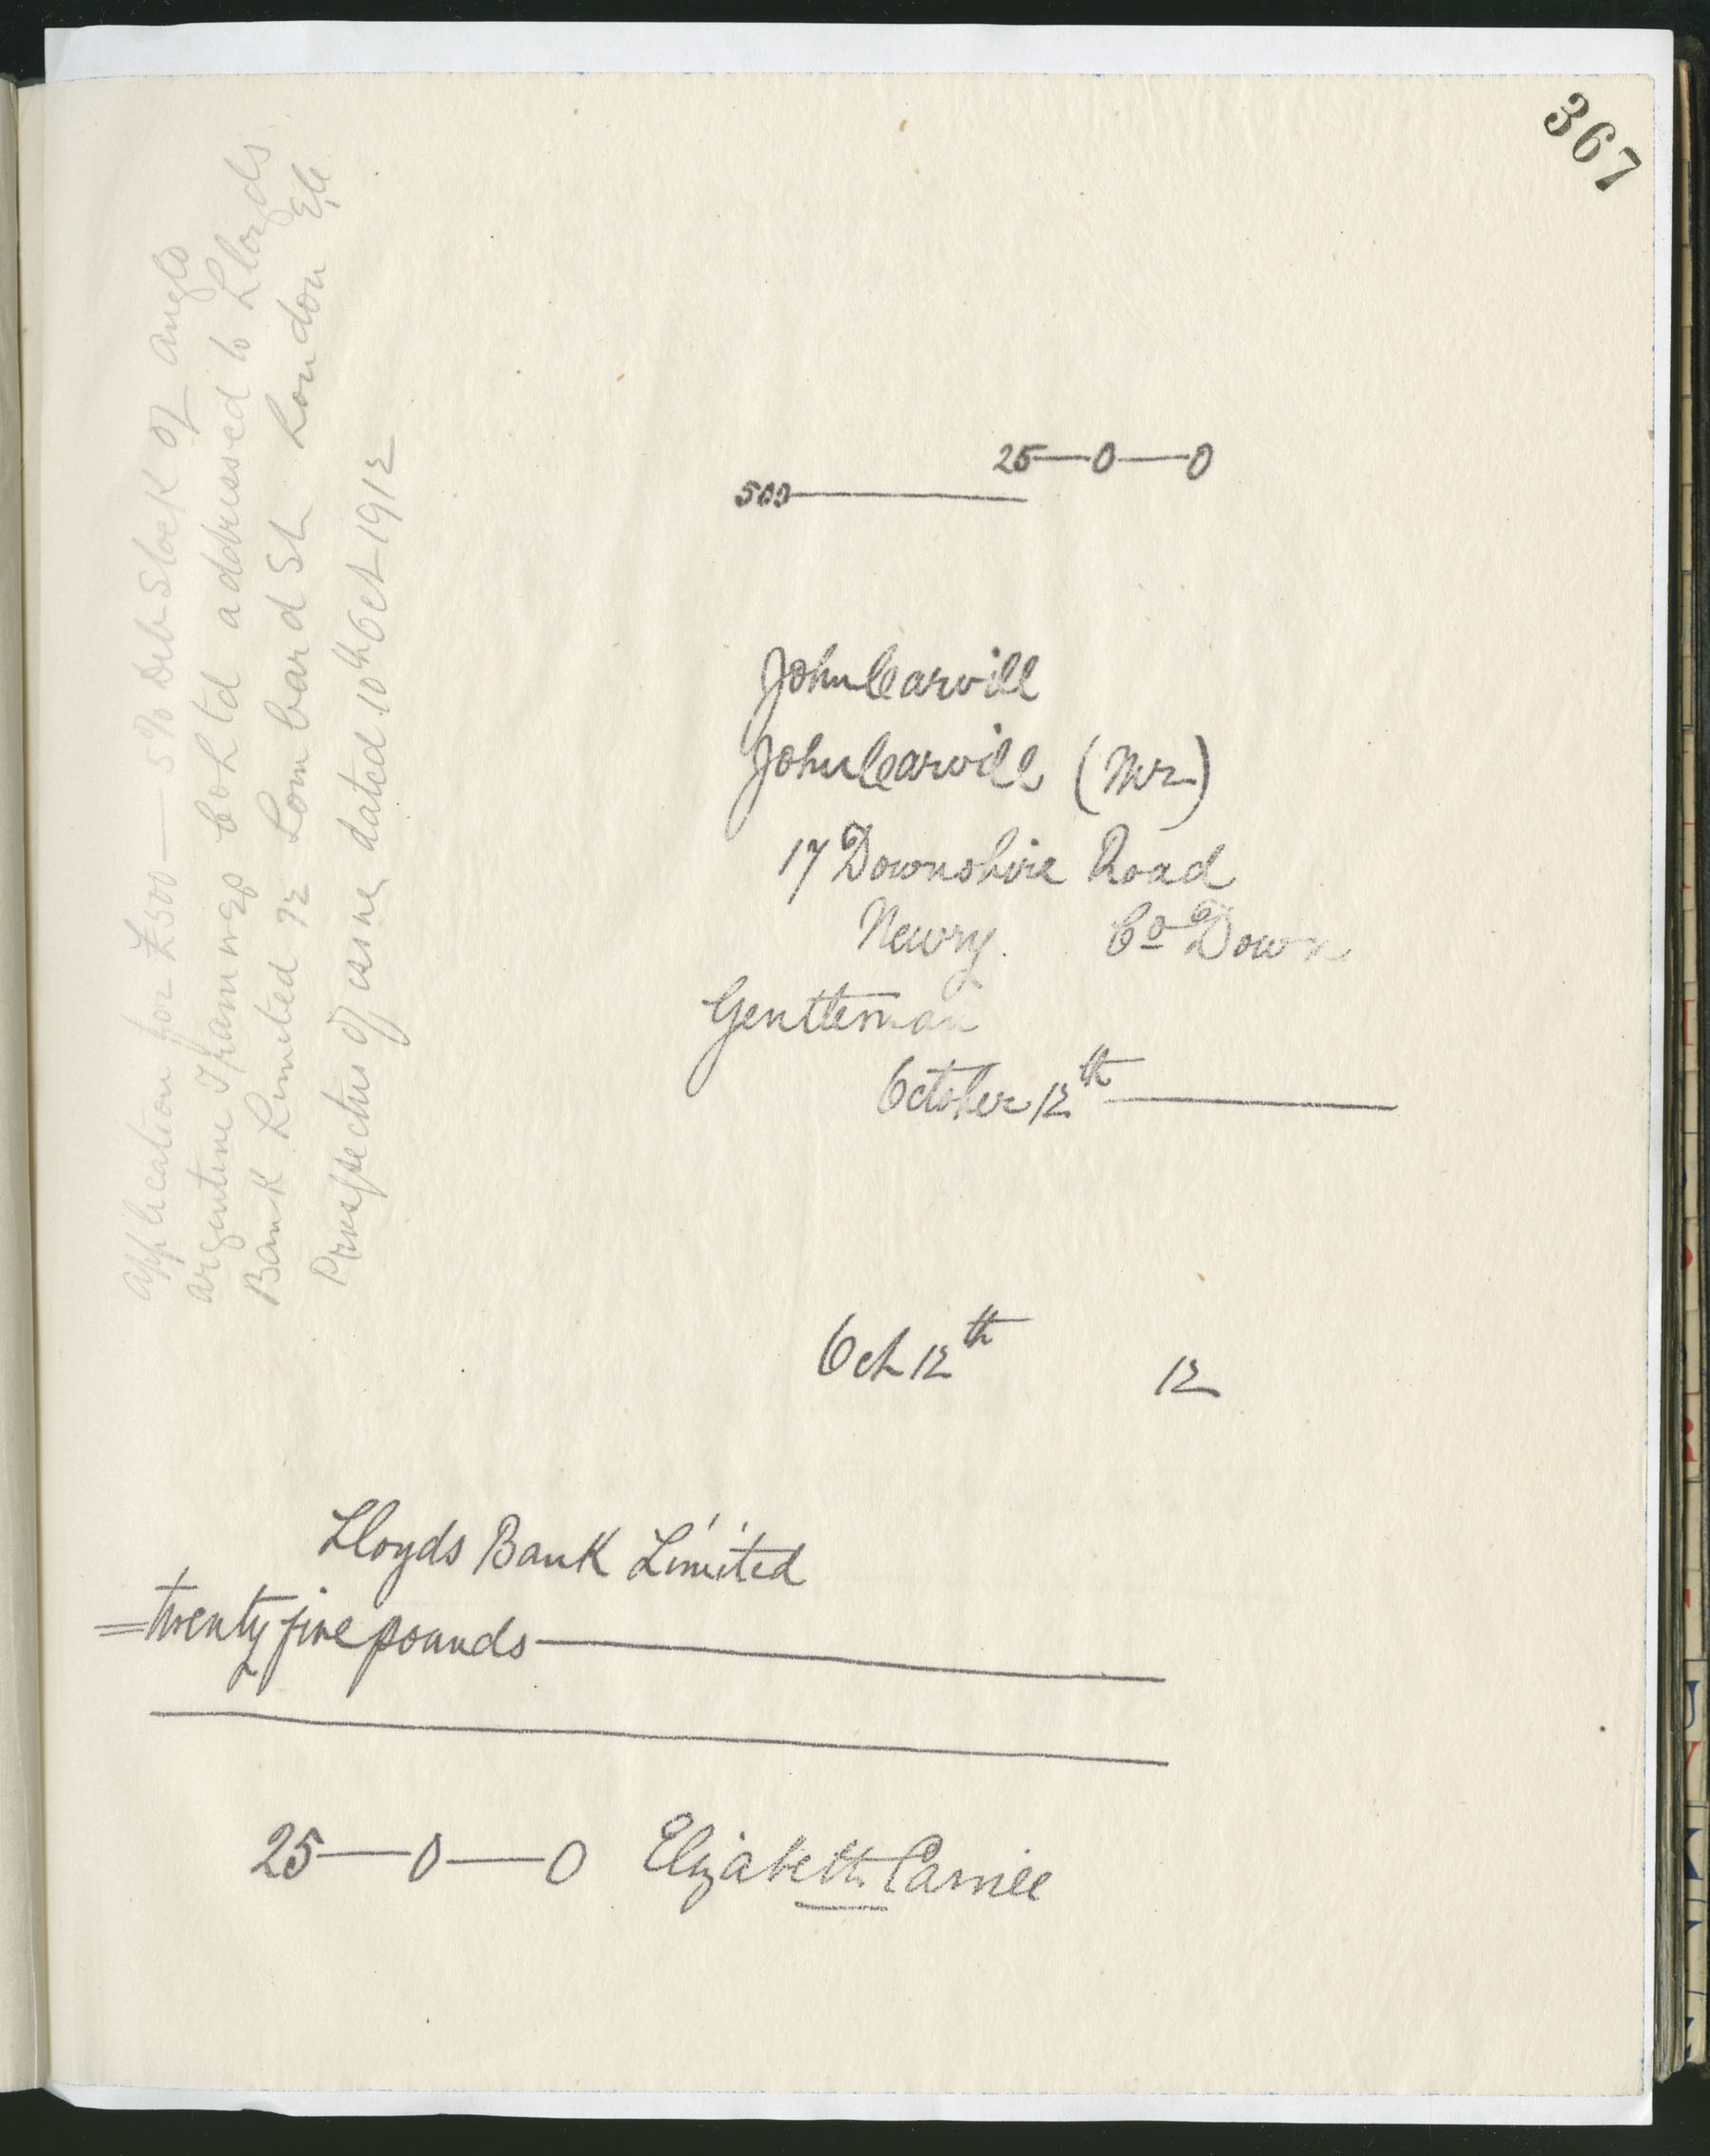 367
25—0—0
500—
John Carvill
John Carvill (Mr)
17 Downshire Road
Newry. Co Down
Gentleman
October 12th—
Oct 12th 12
Lloyds Bank Limited
=twenty five pounds—
25—0—0 Elizabeth Carvill
Application for £500— 5% Deb Stock of Anglo
Argentine Tramways Coy Ltd addressed to Lloyds
Bank Limited 72 Lombard St London E.C.
Prospectus of issue dated 10th Oct 1912